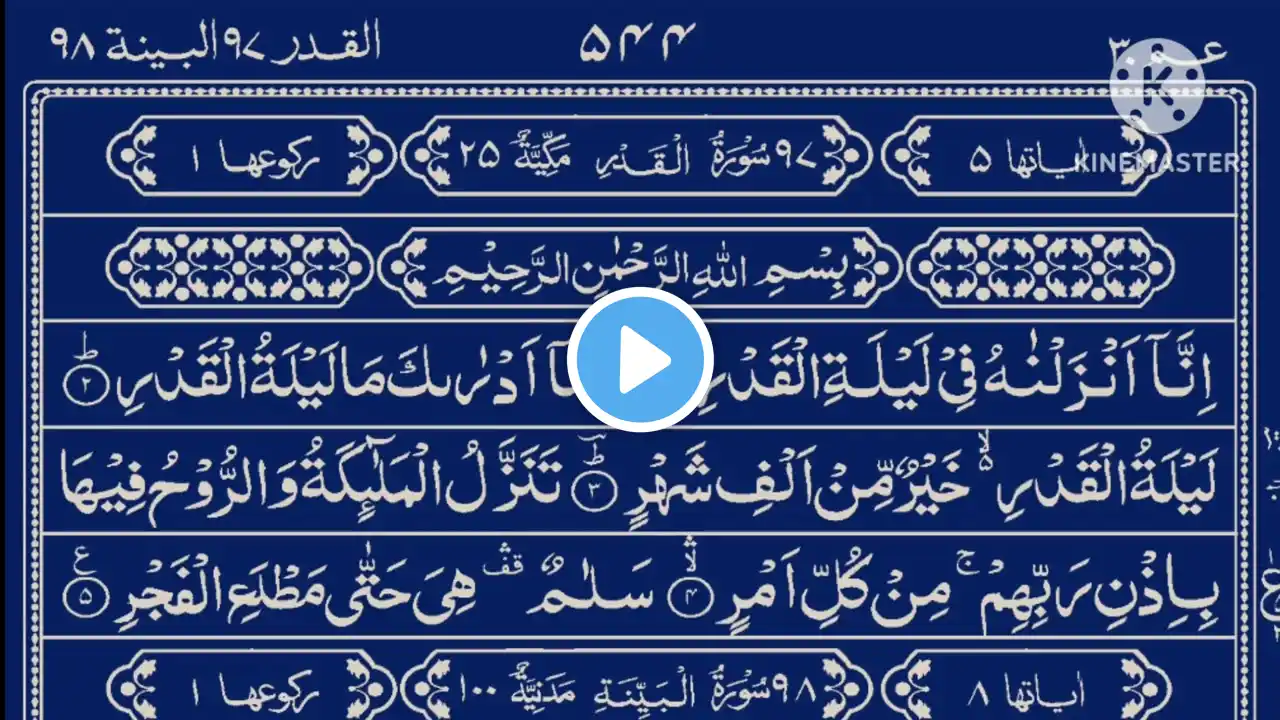 عم ٣٠ ۵۴۴ القدر ٩٧ البينة ٩٨
KINEMASTER
اٰیاتها ۵ ٩٧ سُوْرَةُ الْقَدْرِ مَکِّیَّةٌ ٢۵ رکوعها ١
بِسْمِ اللّٰهِ الرَّحْمٰنِ الرَّحِیْمِ
اِنَّاۤ اَنْزَلْنٰهُ فِیْ لَیْلَةِ الْقَدْرِ اَدْرٰىكَ مَا لَیْلَةُ الْقَدْرِ ؕ ٢
لَیْلَةُ الْقَدْرِ ۙ۬ خَیْرٌ مِّنْ اَلْفِ شَهْرٍ ؕ ٣ تَنَزَّلُ الْمَلٰٓىِٕكَةُ وَ الرُّوْحُ فِیْهَا
بِاِذْنِ رَبِّهِمْ ۚ مِنْ كُلِّ اَمْرٍ ۙ ۴ سَلٰمٌ ۛ قف هِیَ حَتّٰى مَطْلَعِ الْفَجْرِ ع ۵
اٰیاتها ٨ ٩٨ سُوْرَةُ الْبَیِّنَةِ مَدَنِیَّةٌ ١٠٠ رکوعها ١